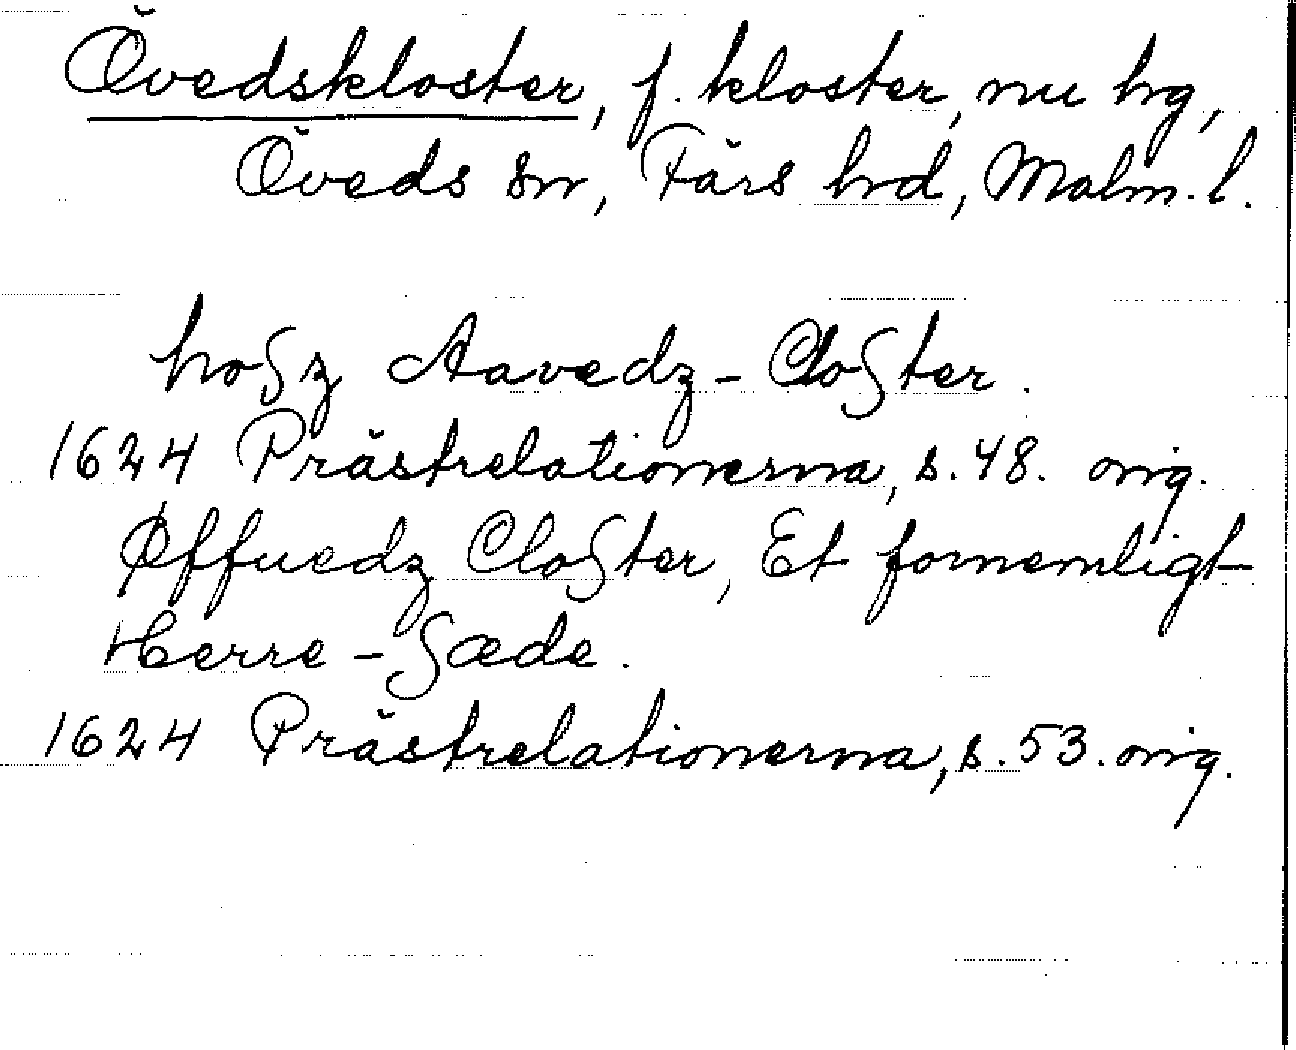 Övedskloster, f. kloster, nu hg,
Öveds sn, Färs hrd, Malm. l.
hoſz Aavedz-Cloſter.
1624 Prästrelationerna, s. 48. orig.
Øffuedz Cloſter, Et fornemligt
Herre-ſæde.
1624 Prästrelationerna, s. 53. orig.